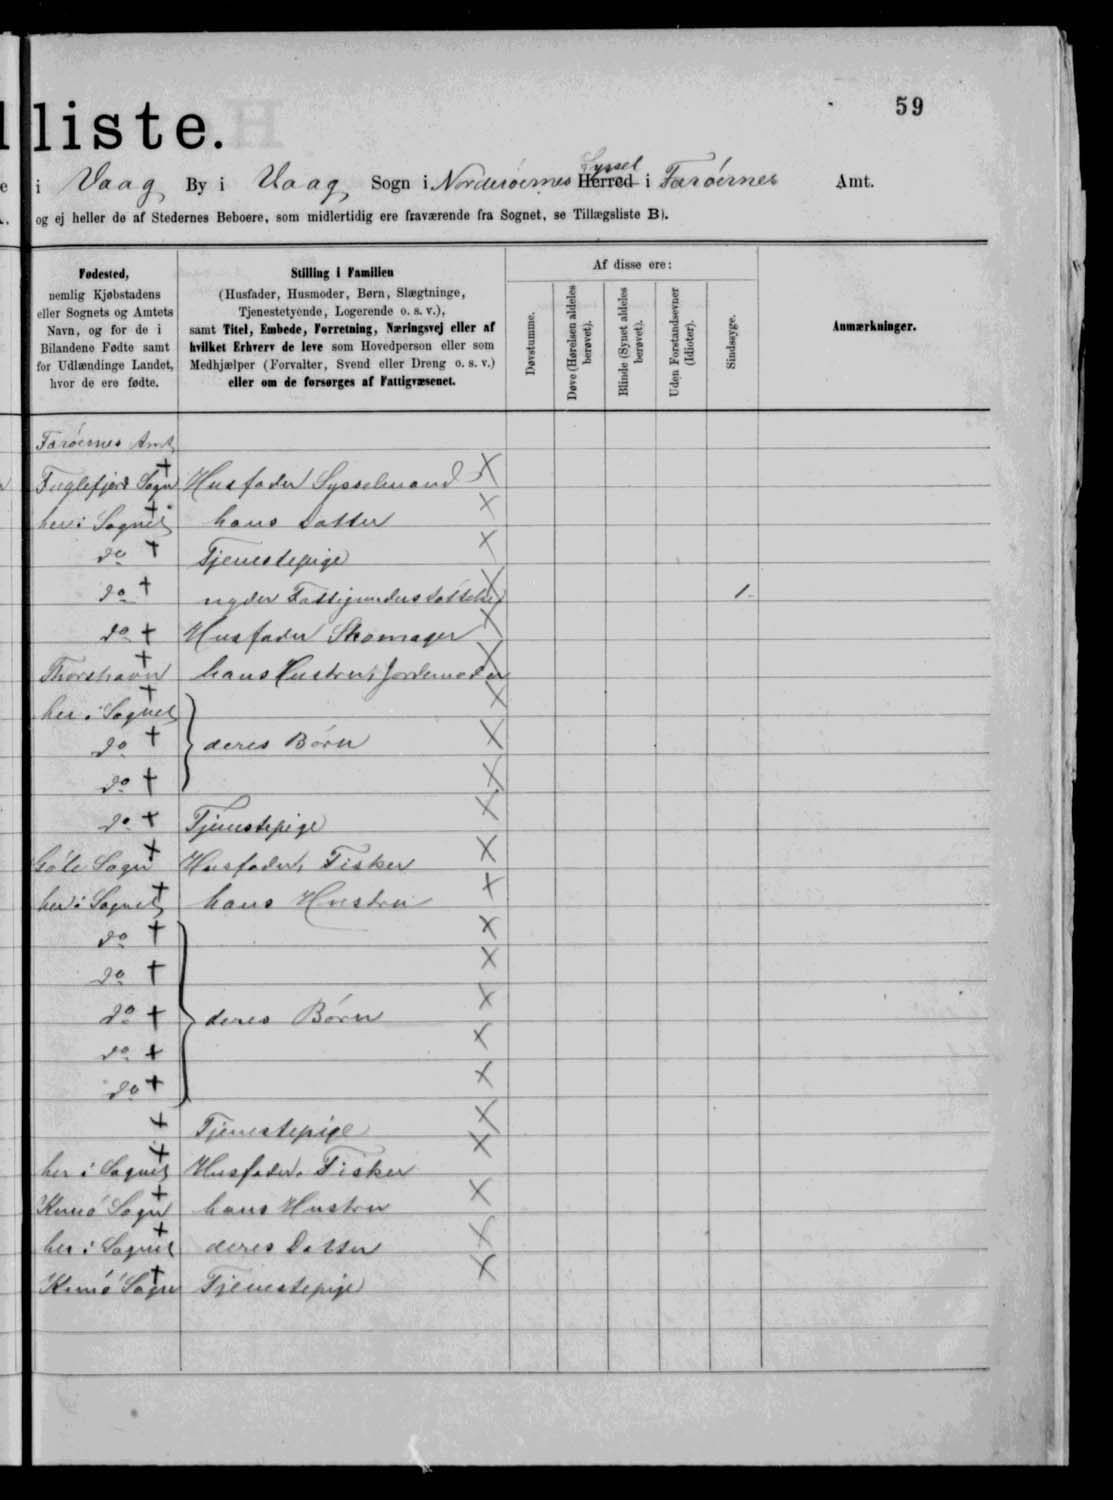 59
liste.
i Vaag By i Vaag Sogn i Norderöernes Herred Syssel i Færöernes Amt.
og ej heller de af Stedernes Beboere, som midlertidig ere fraværende fra Sognet, se Tillægsliste B).
Fødested,
nemlig Kjøbstadens
eller Sognets og Amtets
Navn, og for de i
Bilandene Fødte samt
for Udlændinge Landet,
hvor de ere fødte.
Stilling i Familien
(Husfader, Husmoder, Børn, Slægtninge,
Tjenestetyende, Logerende o. s. v.),
samt Titel, Embede, Forretning, Næringsvej eller af
hvilket Erhverv de leve som Hovedperson eller som
Medhjælper (Forvalter, Svend eller Dreng o. s. v.)
eller om de forsørges af Fattigvæsenet.
Af disse ere:
Døvstumme.
Døve (Hørelsen aldeles
berøvet).
Blinde (Synet aldeles
berøvet).
Uden Forstandsevner
(Idioter).
Sindssyge.
Anmærkninger.
Færöernes Amt
Fuglefjord Sogn Husfader Sysselmand
her i Sognet hans Datter
do Tjenestepige
do nyder Fattigunderstøttelse 1
do Husfader Skomager
Thorshavn hans Hustru, Jordemoder
her i Sognet
do deres Børn
do
do Tjenestepige
Sogn Husfader, Fisker
her i Sognet hans Hustru
do
do
do deres Børn
do
do
Tjenestepige
her i Sognet Husfader, Fisker
Kunö Sogn hans Hustru
her i Sognet deres Datter
Kunö Sogn Tjenestepige